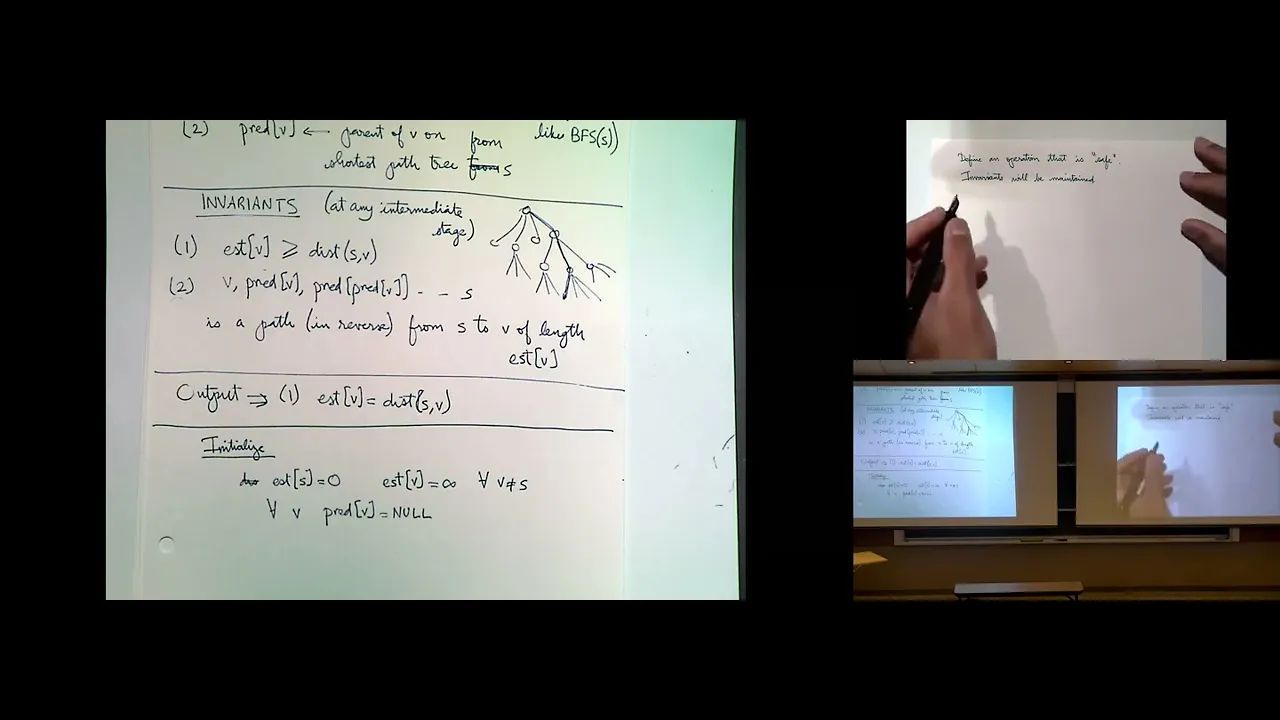 (2) pred[v] ← parent of v on from like BFS(s))
shortest path tree from s
INVARIANTS (at any intermediate
stage)
(1) est[v] ⩾ dist(s,v)
(2) v, pred[v], pred[pred[v]] - - s
is a path (in reverse) from s to v of length
est[v]
Output ⇒ (1) est[v] = dist(s,v)
Initialize
est[s]=0 est[v]=∞ ∀ v≠s
∀ v pred[v]=NULL
Define an operation that is "safe".
Invariants will be maintained